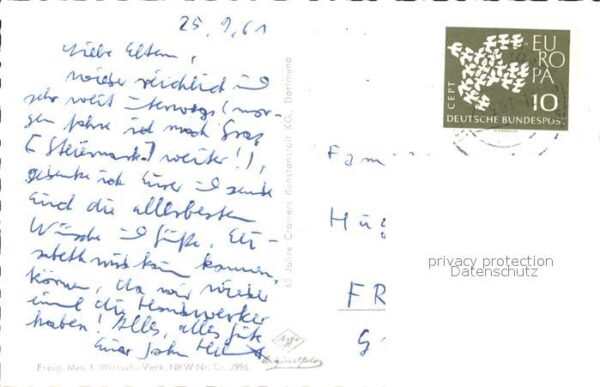 25.9.61
Liebe Eltern,
wieder reichlich und
sehr weit unterwegs (mor-
gen fahre ich nach Graz
[Steiermark] weiter!),
gedenke ich Eurer und sende
Euch die allerbesten
Wünsche und Grüße. Eli-
sabeth wird kein kommen
können, da wir wieder
einmal die Handwerker
haben! Alles, alles Gute
Euer Sohn
60 Jahre Cramers Kunstanstalt KG., Dortmund
Agfa
Freig. Min. f. Wirtsch. Verk. NRW Nr. Cr. 2996
EUROPA
CEPT
10
DEUTSCHE BUNDESPOST
Fam
Hü
FR
G
privacy protection
Datenschutz